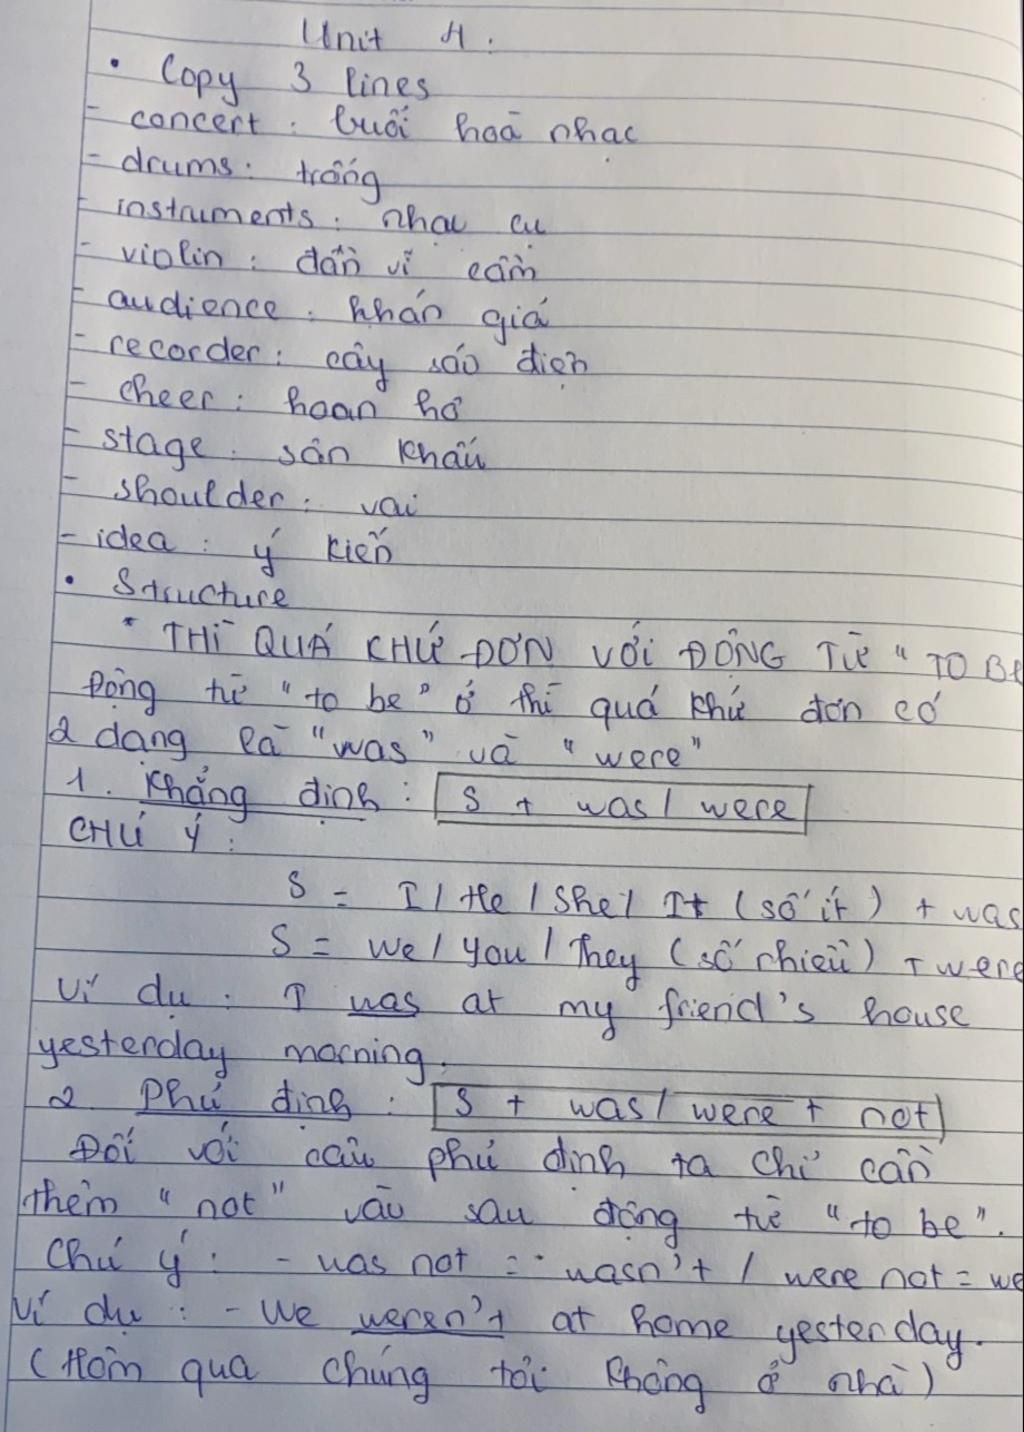 Unit 4:
• Copy 3 lines
- concert: buổi hoà nhạc
- drums: trống
- instruments: nhạc cụ
- violin: đàn vĩ cầm
- audience: khán giả
- recorder: cây sáo điện
- cheer: hoan hô
- stage: sân khấu
- shoulder: vai
- idea: ý kiến
• Structure
* THÌ QUÁ KHỨ ĐƠN VỚI ĐỘNG TỪ "TO BE
Động từ "to be" ở thì quá khứ đơn có
2 dạng là "was" và "were"
1. Khẳng định: S + was / were
CHÚ Ý:
S = I / He / She / It (số ít) + was
S = we / you / They (số nhiều) + were
Ví dụ: I was at my friend's house
yesterday morning.
2. Phủ định: S + was / were + not
Đối với câu phủ định ta chỉ cần
thêm "not" vào sau động từ "to be".
Chú ý: - was not = wasn't / were not = we
Ví dụ: - We weren't at home yesterday.
(Hôm qua chúng tôi không ở nhà)